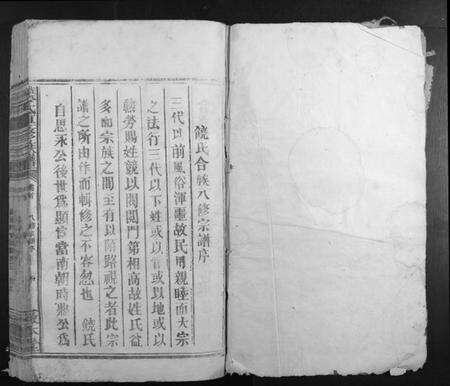 饒氏合族八修宗譜序
三代以前風俗渾龐故民用親睦而大宗
之法行三代以下姓或以官或以地或以
勲勞賜姓競以閥閱門第相高故姓氏益
多而宗族之間至有以陌路視之者此宗
譜之所由作而輯修之不容忽也 饒氏
自思永公後世爲顯官當南朝時鼎公爲